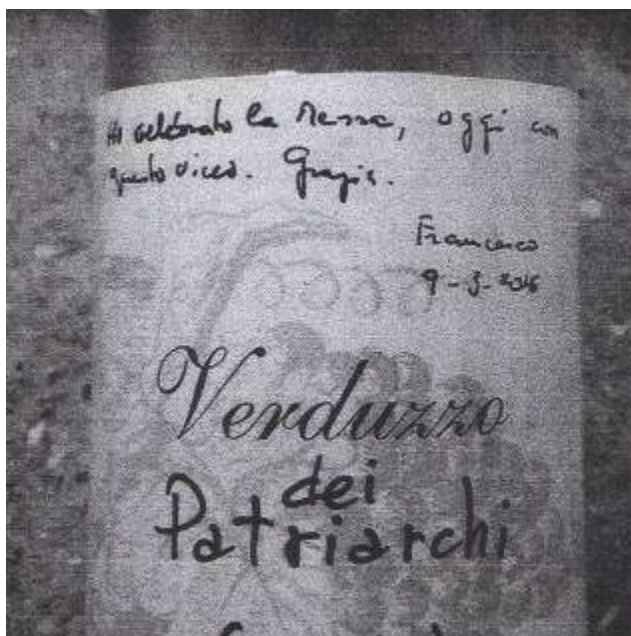 Ho celebrato la Messa, oggi con
questo vino. Grazie.
Francesco
9-3-2016
Verduzzo
dei
Patriarchi